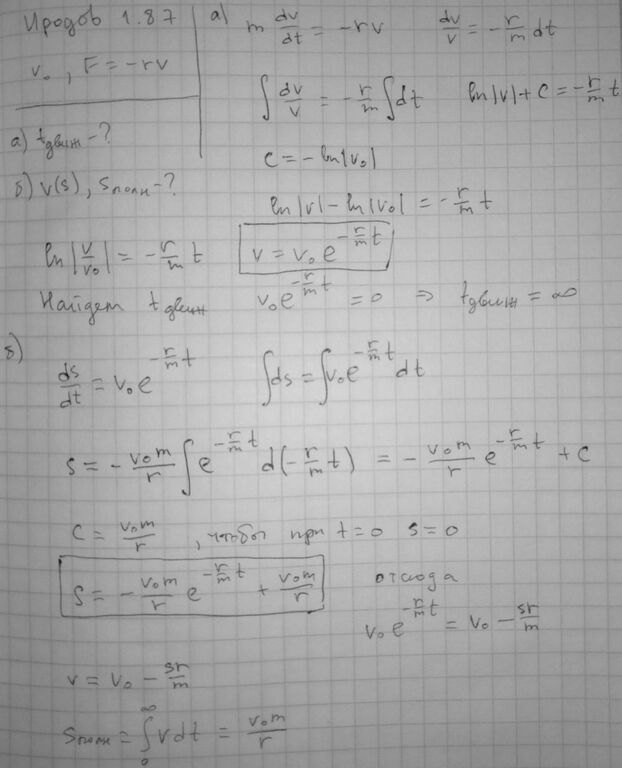 Иродов 1.87
v₀, F = -rv
а) tдвиж - ?
б) v(s), sполн - ?
а) m dv/dt = -rv    dv/v = -r/m dt
∫ dv/v = -r/m ∫ dt    ln|v| + c = -r/m t
c = -ln|v₀|
ln|v| - ln|v₀| = -r/m t
ln|v/v₀| = -r/m t    v = v₀ e^(-r/m t)
Найдем tдвиж    v₀ e^(-r/m t) = 0 ⇒ tдвиж = ∞
б) ds/dt = v₀ e^(-r/m t)    ∫ ds = ∫ v₀ e^(-r/m t) dt
s = - v₀m/r ∫ e^(-r/m t) d(-r/m t) = - v₀m/r e^(-r/m t) + c
c = v₀m/r, чтобы при t = 0 s = 0
s = - v₀m/r e^(-r/m t) + v₀m/r    отсюда
v₀ e^(-r/m t) = v₀ - sr/m
v = v₀ - sr/m
sполн = ∫₀^∞ v dt = v₀m/r